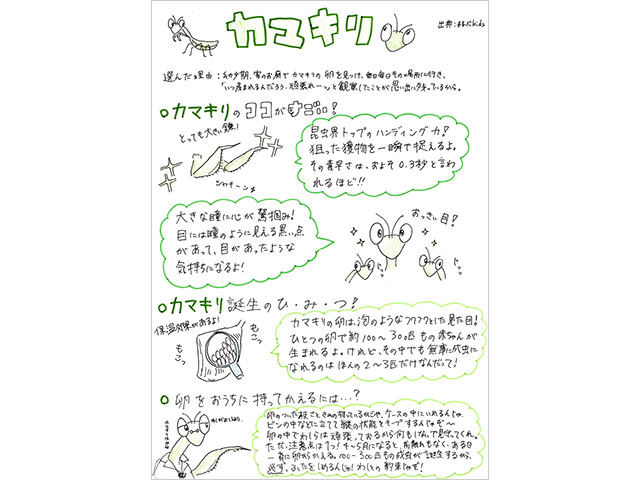 カマキリ
出典：まなぶkids
選んだ理由：幼少期、家のお庭でカマキリの卵を見つけ、毎日毎日その場所に行き、
「いつ産まれるんだろう、頑張れー」と観察したことが思い出に残っているから。
カマキリのココがすごい！
とっても大きい鎌！
シャキーン
昆虫界トップのハンディング力！
狙った獲物を一瞬で捉えるよ。
その素早さは、およそ0.3秒と言わ
れるほど!!
大きな瞳に心が鷲掴み！
目には瞳のように見える黒い点
があって、目があったような
気持ちになるよ！
おっきい目！
じーっ
じーっ
カマキリ誕生のひ・み・つ？
保温効果があるよ！
もこっ
もこっ
カマキリの卵は、泡のようなフワフワとした見た目！
ひとつの卵で約100～300匹もの赤ちゃんが
生まれるよ。けれど、その中でも無事に成虫に
なれるのはほんの2～3匹だけなんだって！
卵をおうちに持ってかえるには…？
卵のついた枝ごときみの持っているかごや、ケースの中にいれるんじゃ。
ビンの中などに立てて縦の状態をキープするんじゃぞ～
卵の中でわしらは頑張っておるから何もしないで見守ってくれ。
ただ、注意点は1つ！4～5月になると、前触れもなく、ある日
一斉に卵からかえる。100～300匹もの成虫が誕生するから、
必ず、